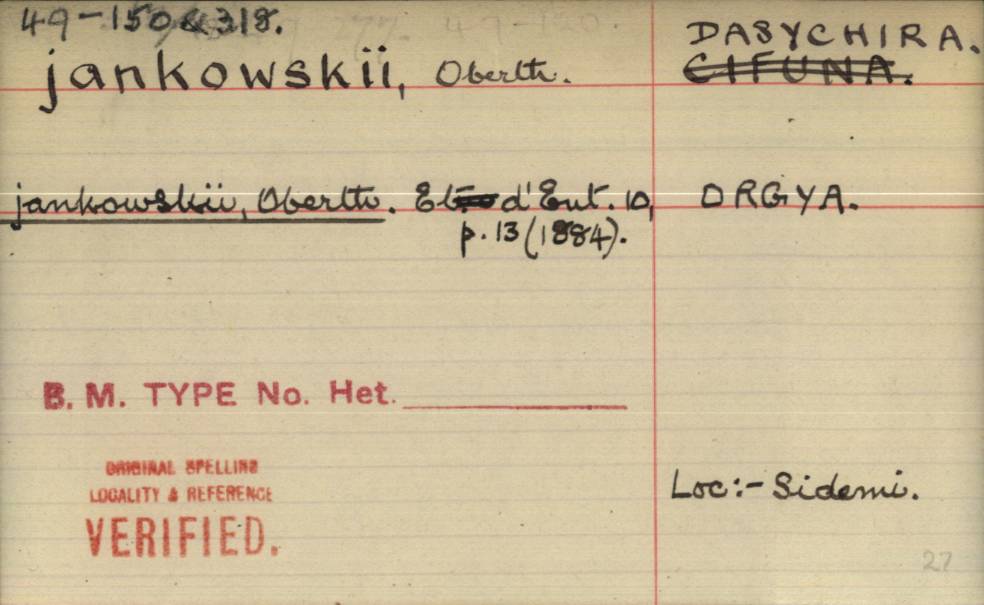 49-150 & 318.
DASYCHIRA.
jankowskii, Oberth. CIFUNA.
jankowskii, Oberth. Et. d'Ent. 10, ORGYA.
p. 13 (1884).
B. M. TYPE No. Het.
ORIGINAL SPELLING
LOCALITY & REFERENCE
VERIFIED.
Loc:- Sidemi.
27